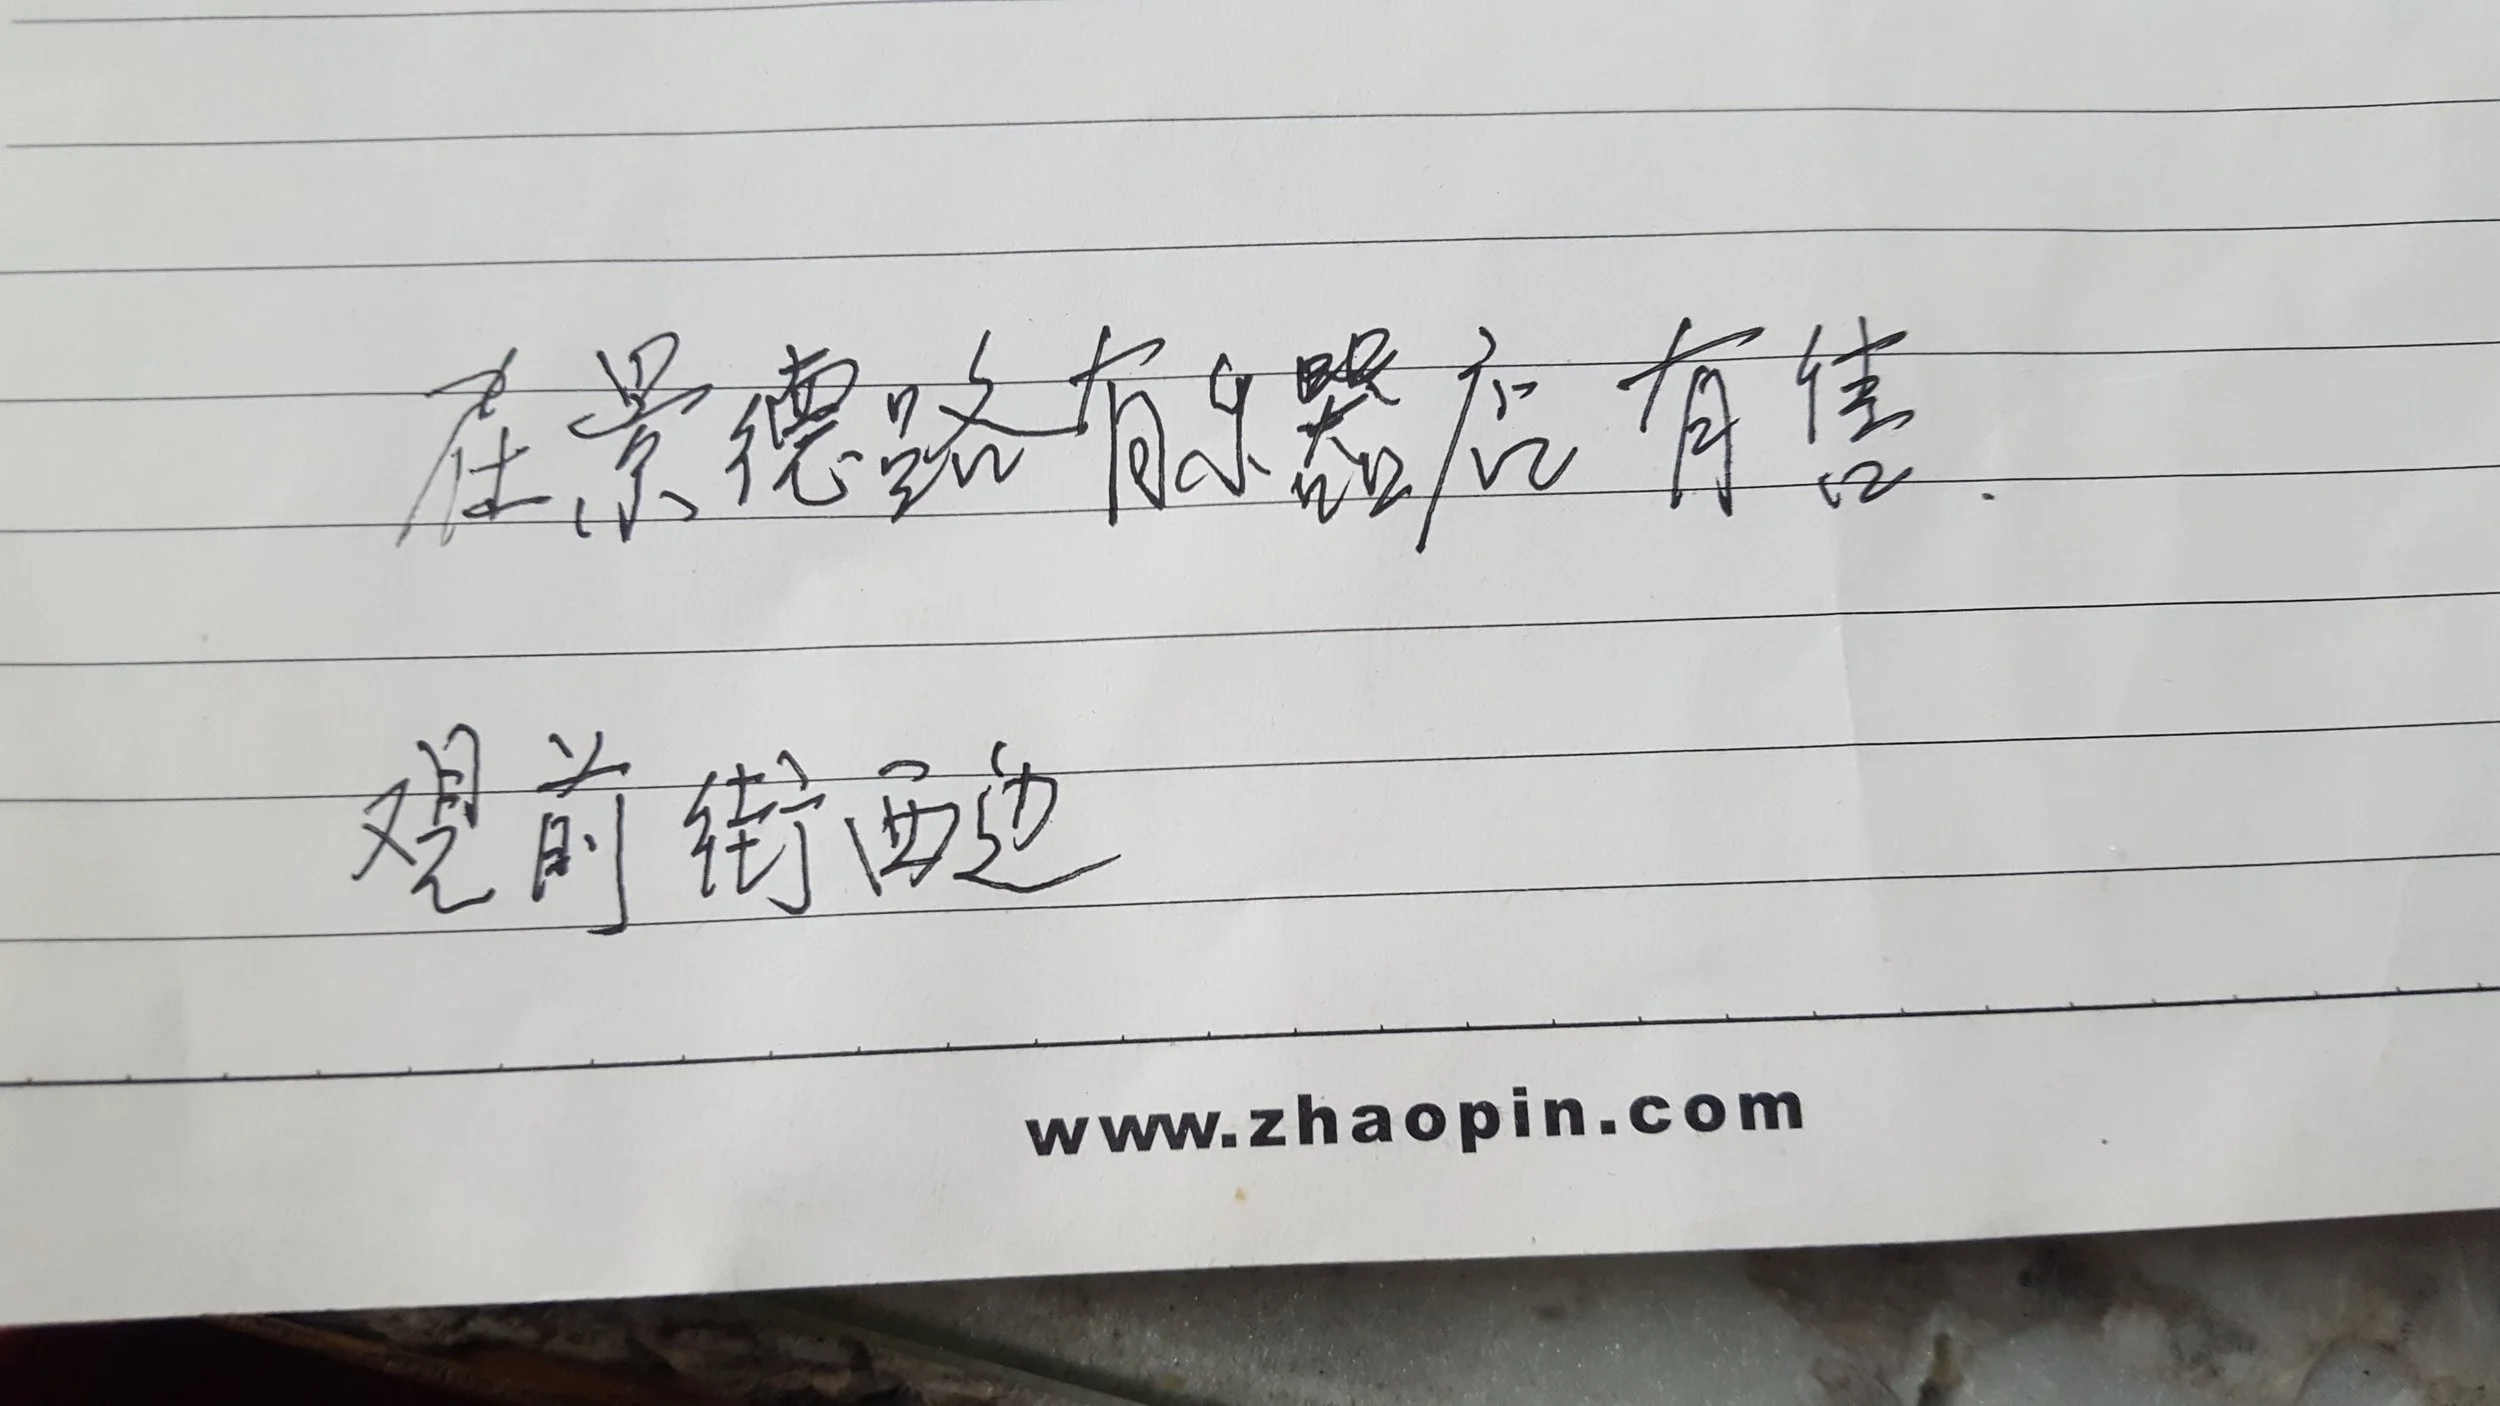 在景德路有乐器店有售.
观前街西边
www.zhaopin.com